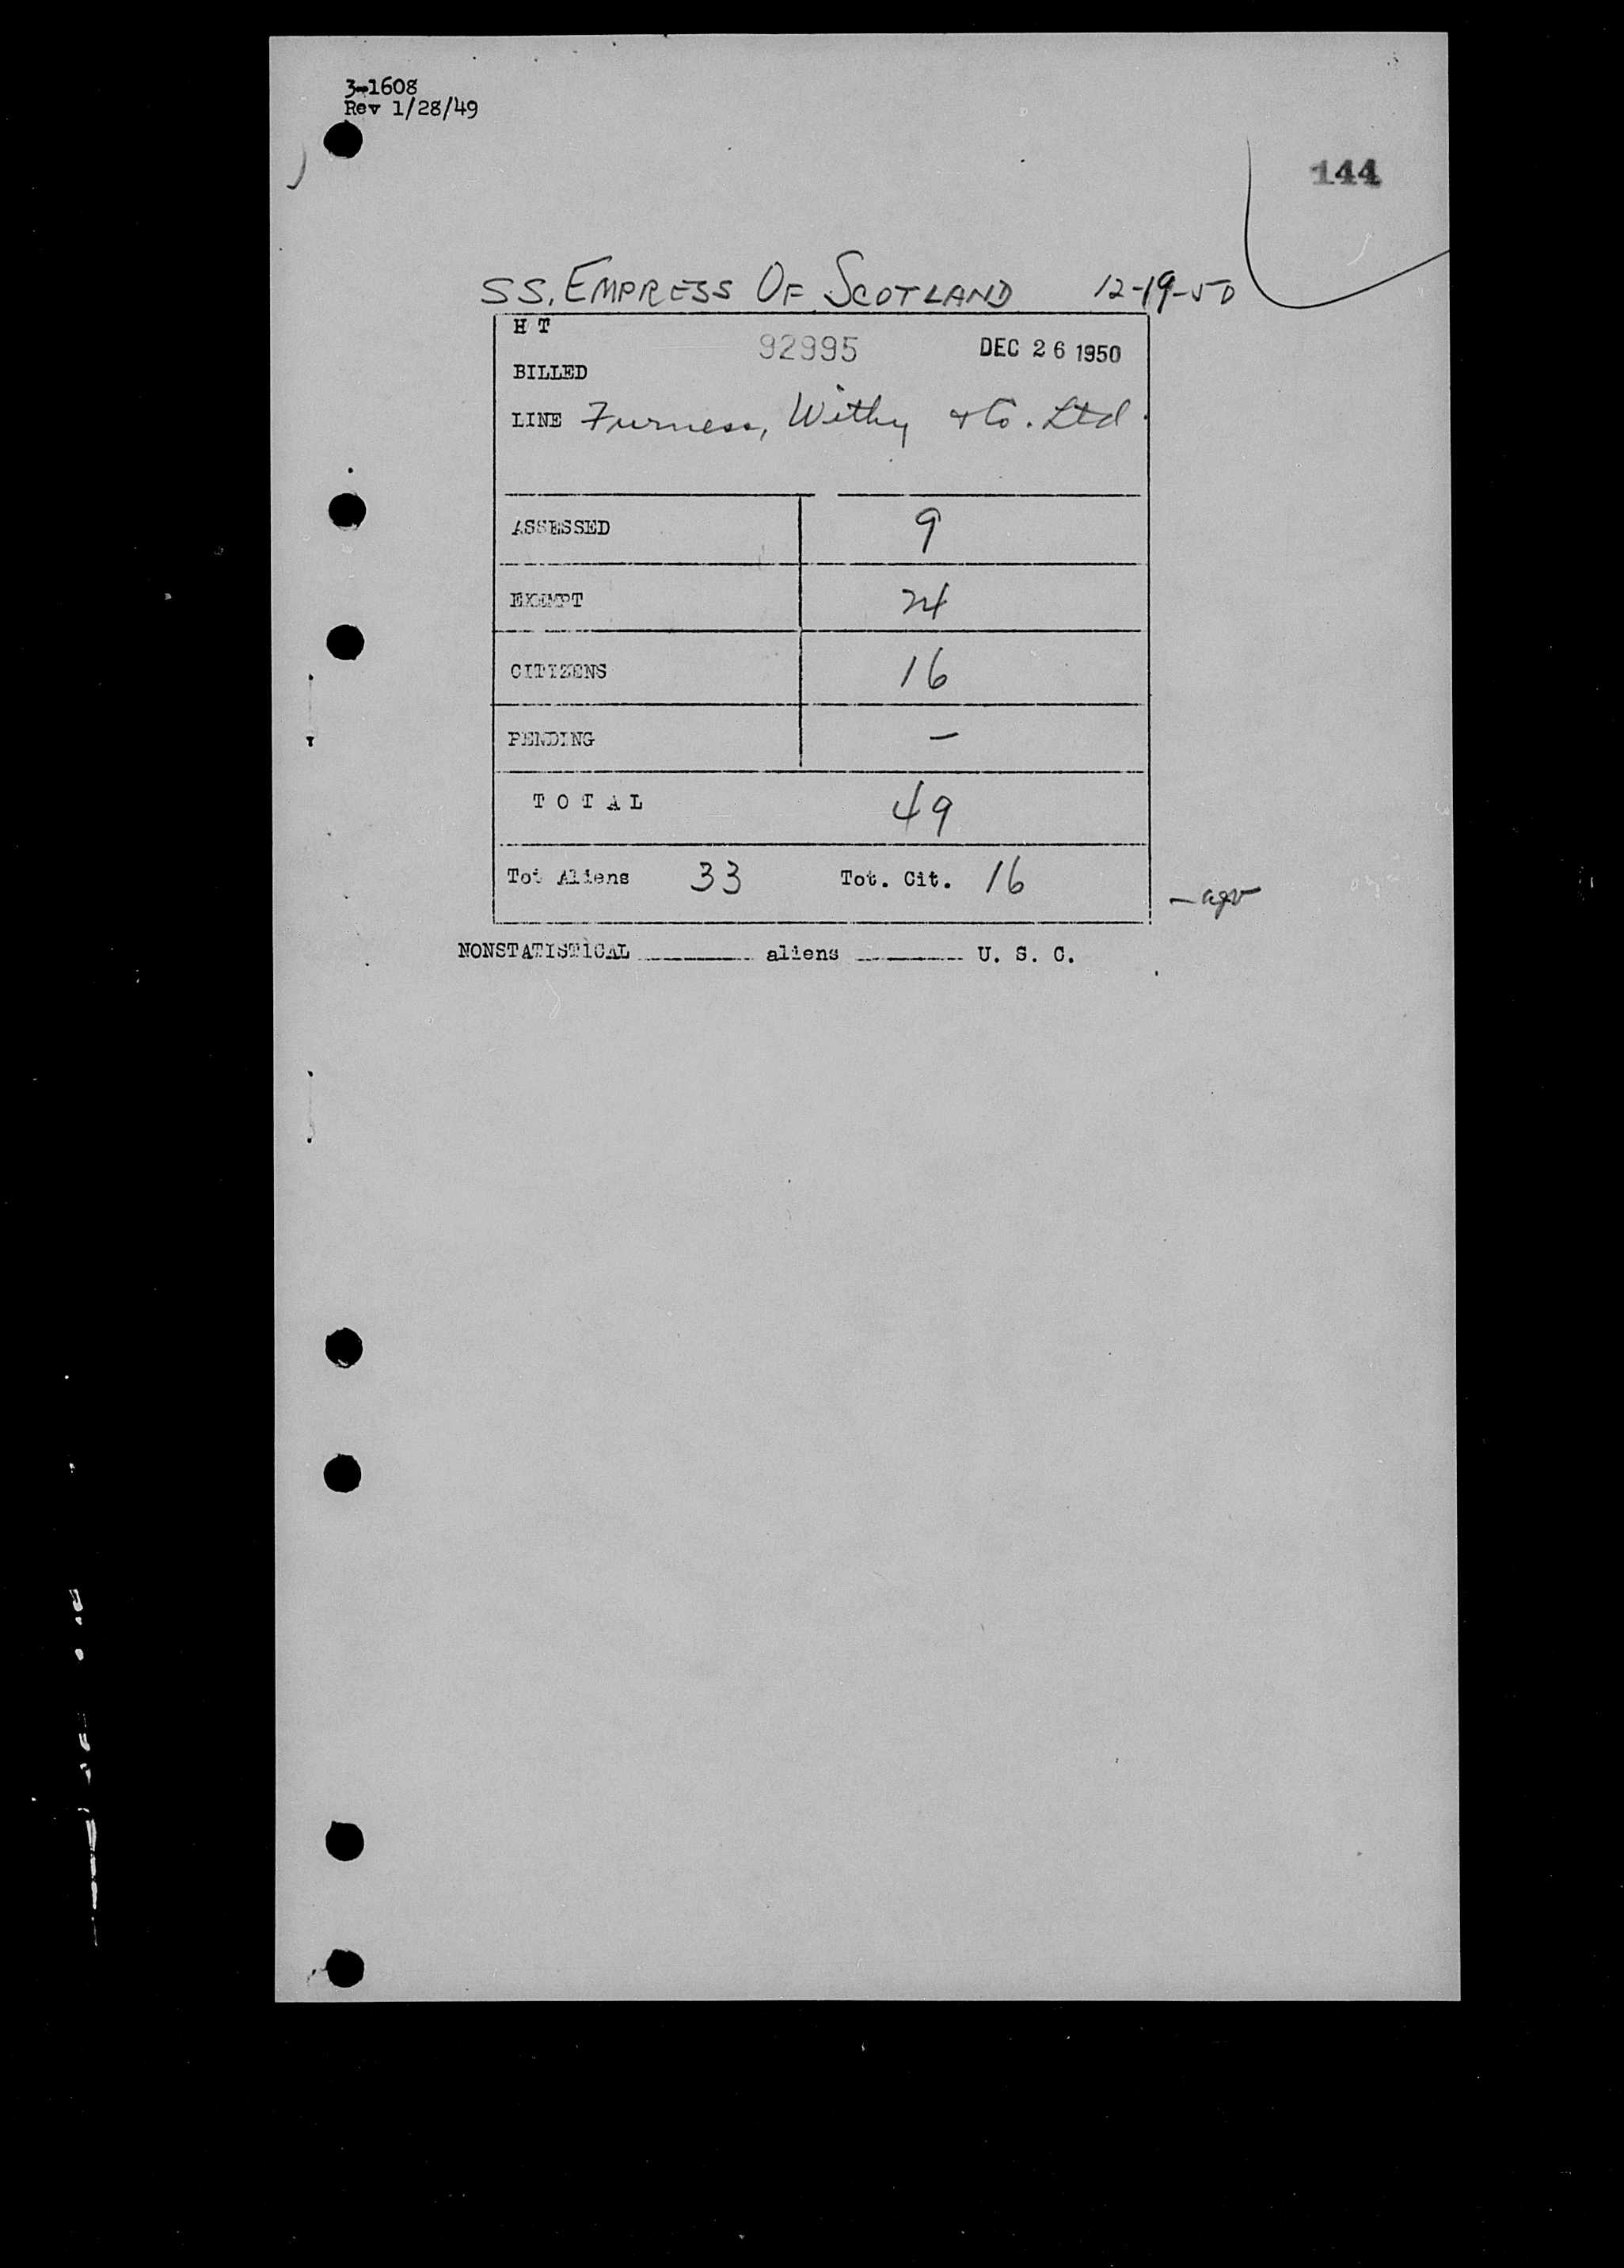 3-1608
Rev 1/28/49
144
SS. EMPRESS OF SCOTLAND 12-19-50
H T
92995 DEC 26 1950
BILLED
LINE Furness, Withy & Co. Ltd.
ASSESSED 9
EXEMPT 24
CITIZENS 16
PENDING —
TOTAL 49
Tot Aliens 33 Tot. Cit. 16
NONSTATISTICAL ________ aliens ________ U. S. C.